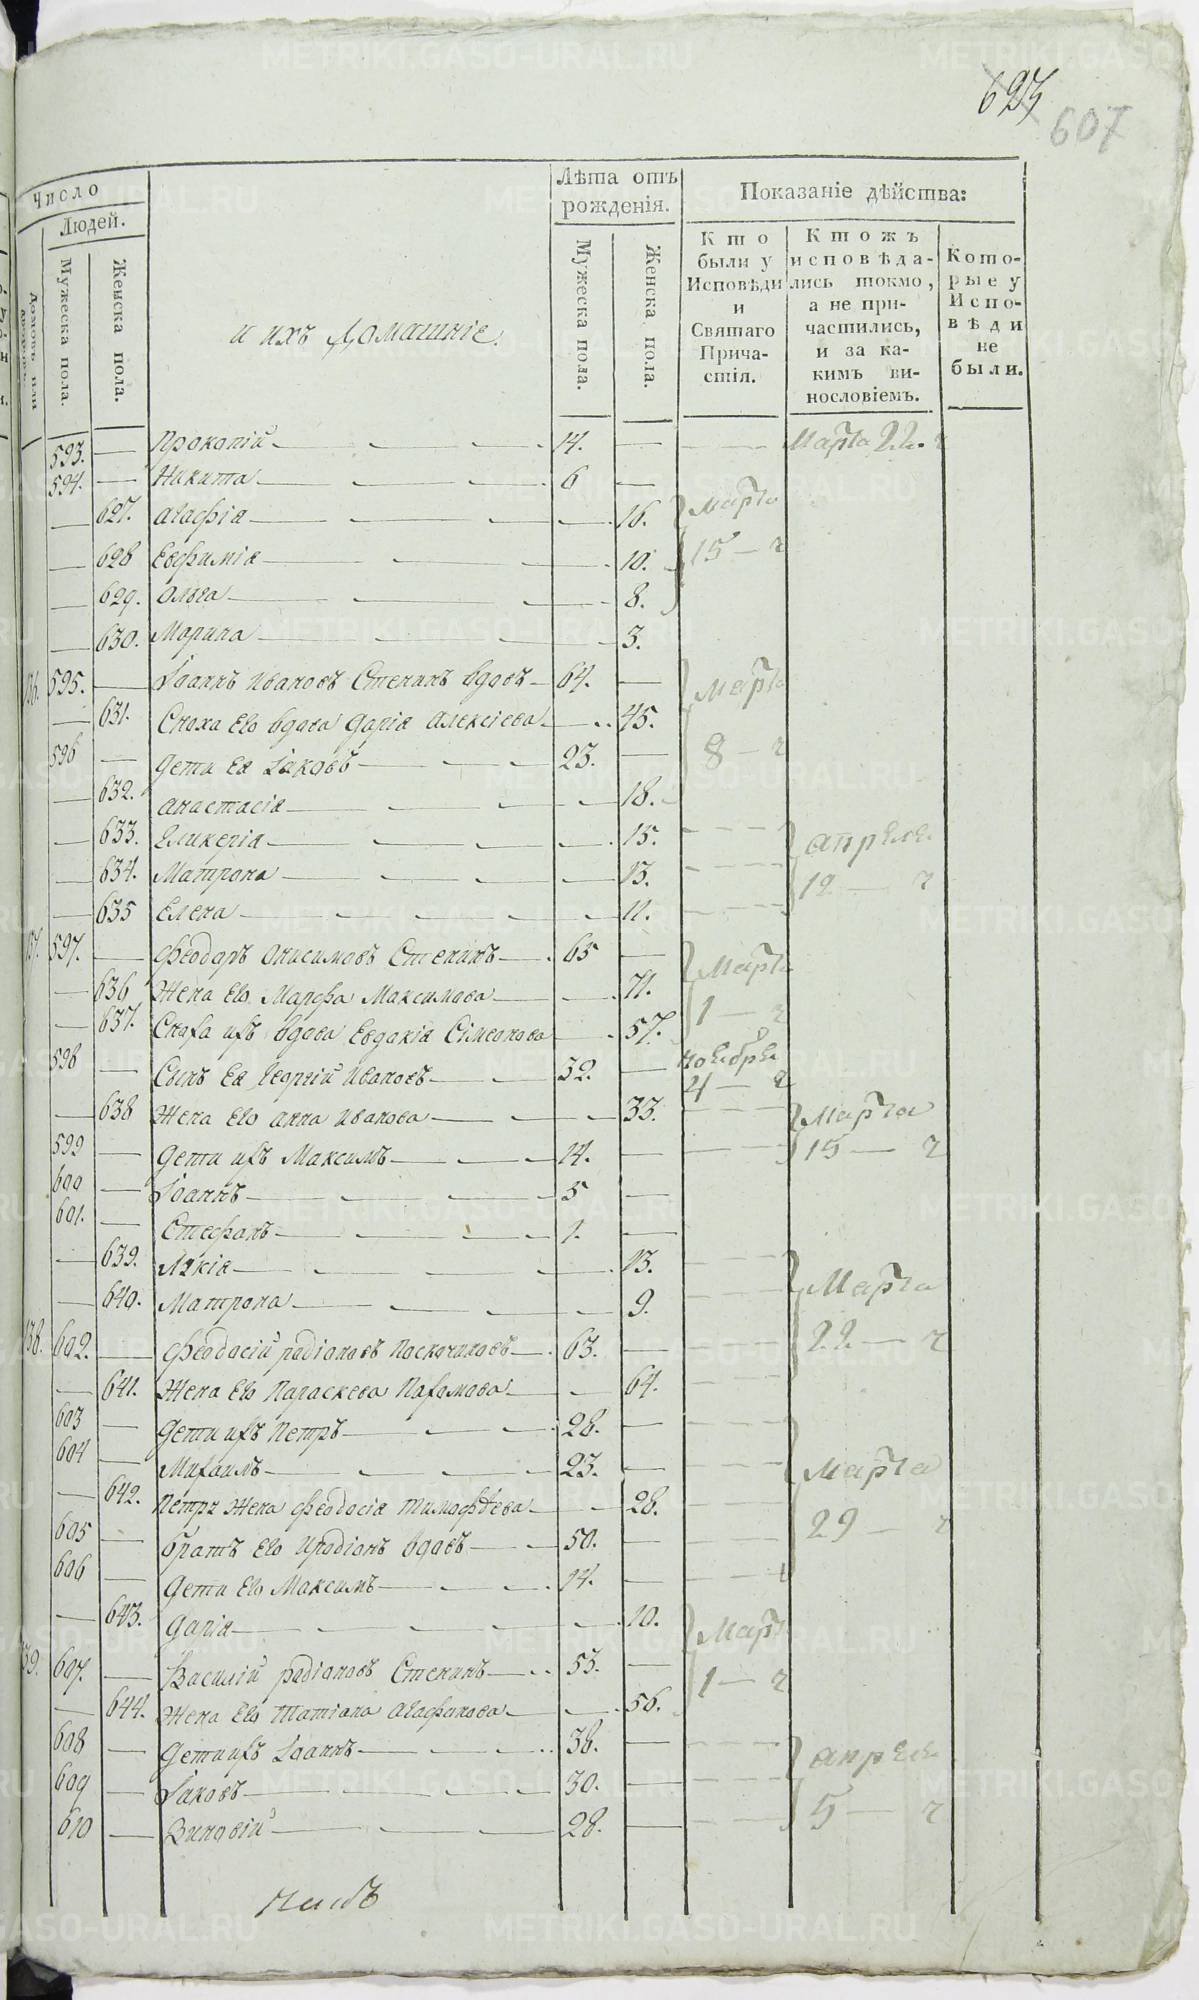 623
607
Число
Людей.
Мужеска пола.
Женска пола.
и ихъ Домашніе.
Лѣта отъ рожденія.
Мужеска пола.
Женска пола.
Показаніе дѣйства:
Кто были у Исповѣди и Святаго Причастія.
Ктожъ исповѣдались токмо, а не причастились, и за какимъ винословіемъ.
Которые у Исповѣди не были.
593. Прокопій 14. Марта 22. ч
594. Никита 6
627. Агафія 16. Марта
628 Евфимія 10. 15 ч
629. Ольга 8.
630. Марина 3.
136. 595. Іоаннъ Ивановъ Стенинъ вдовъ 64. Марта
631. Сноха Его вдова Дарія Алексіева 45.
596 Дети Ея Іаковъ 23. 8 ч
632. Анастасія 18.
633. Гликерія 15. Апреля
634. Матрона 13. 12 ч
635 Елена 11.
137. 597. Феодоръ Онисимовъ Стенинъ 65 Марта
636 Жена Его Марфа Максимова 71.
637. Сноха ихъ вдова Евдакія Сімеонова 57. 1 ч
598 Сынъ Ея Георгій Ивановъ 32. Ноебре 4 ч
638 Жена Его Анна Иванова 33. Марта
599 Дети ихъ Максимъ 14. 15 ч
600 Іоаннъ 5
601. Стефанъ 1.
639. Лꙋкія 13. Марта
640. Матрона 9.
138. 602. Феодосій Родіоновъ Поскочиновъ 63. 22 ч
641. Жена Его Параскева Пахомова 64.
603 Дети ихъ Петръ 28.
604 Михаилъ 23. Марта
642. Петрꙋ Жена Феодосія Тимофѣева 28.
605 Братъ Его Иродіонъ вдовъ 50. 29 ч
606 Дети Его Максимъ 14.
643. Дарія 10. Март
139. 607. Василій Родіоновъ Стенинъ 53.
644. Жена Его Татіана Агафонова 56. 1 ч
608 Дети ихъ Іоаннъ 38. Апреля
609 Іаковъ 30.
610 Зиновій 28. 5 ч
METRIKI.GASO-URAL.RU